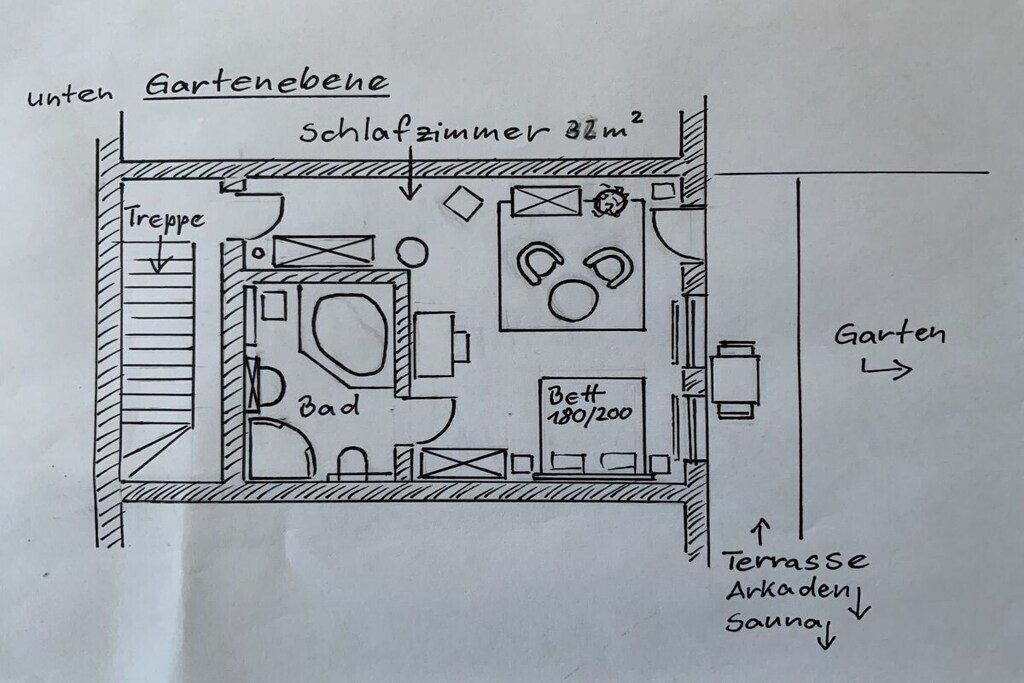 unten Gartenebene
Schlafzimmer 32 m²
Treppe
Garten
Bett
180/200
Bad
Terrasse
Arkaden
Sauna